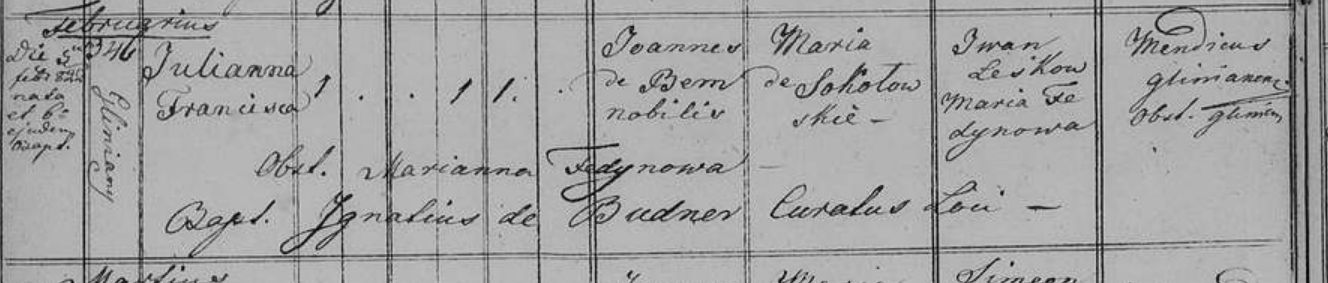 Februarius
Die 5
febr 822
nata
et 6a
ejusdem
Bapt.
346
Gliniany
Julianna
Francisca
1 . . 1 1 . .
Joannes
de Bem
nobilis
Maria
de Sokołow
skie –
Iwan
Leśkow
Maria Fe
dynowa
Mendicus
glinianens.
Obst. glinien,
Obst. Marianna Fedynowa –
Bapt. Ignatius de Budner Curatus Loci –
Martius
Maria
Simeon